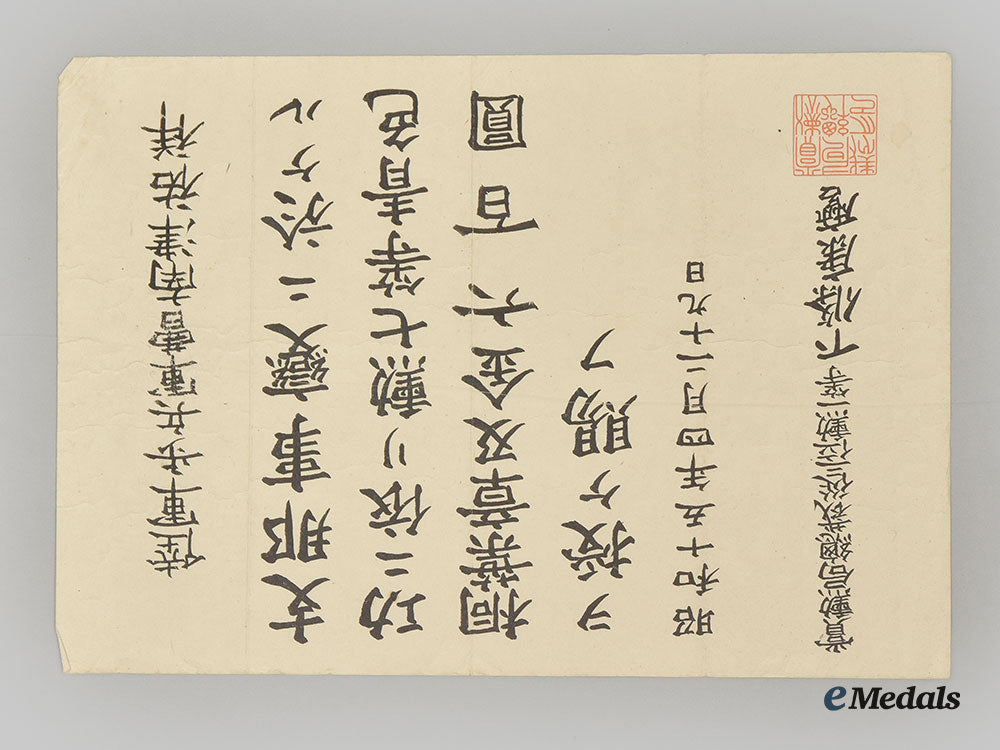 陸軍步兵軍曹南津祐祥
支那事變ニ於ケル
功ニ依リ勲七等青色
桐葉章及金六百圓
ヲ授ケ賜フ
昭和十五年四月二十九日
賞勲局總裁從三位勲一等下條康麿
eMedals